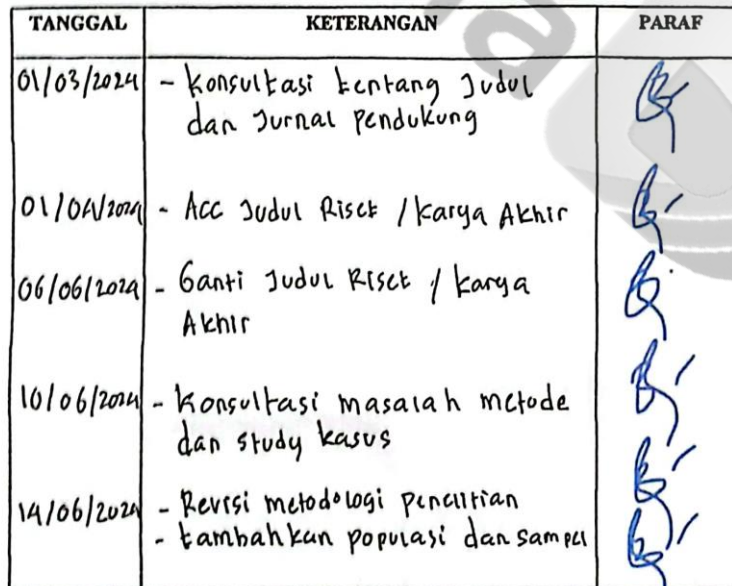 TANGGAL KETERANGAN PARAF
01/03/2024 - Konsultasi tentang Judul
dan Jurnal Pendukung
01/04/2024 - Acc Judul Riset / Karya Akhir
06/06/2024 - Ganti Judul Riset / Karya
Akhir
10/06/2024 - Konsultasi masalah metode
dan study kasus
14/06/2024 - Revisi metodologi penelitian
- tambahkan populasi dan sampel